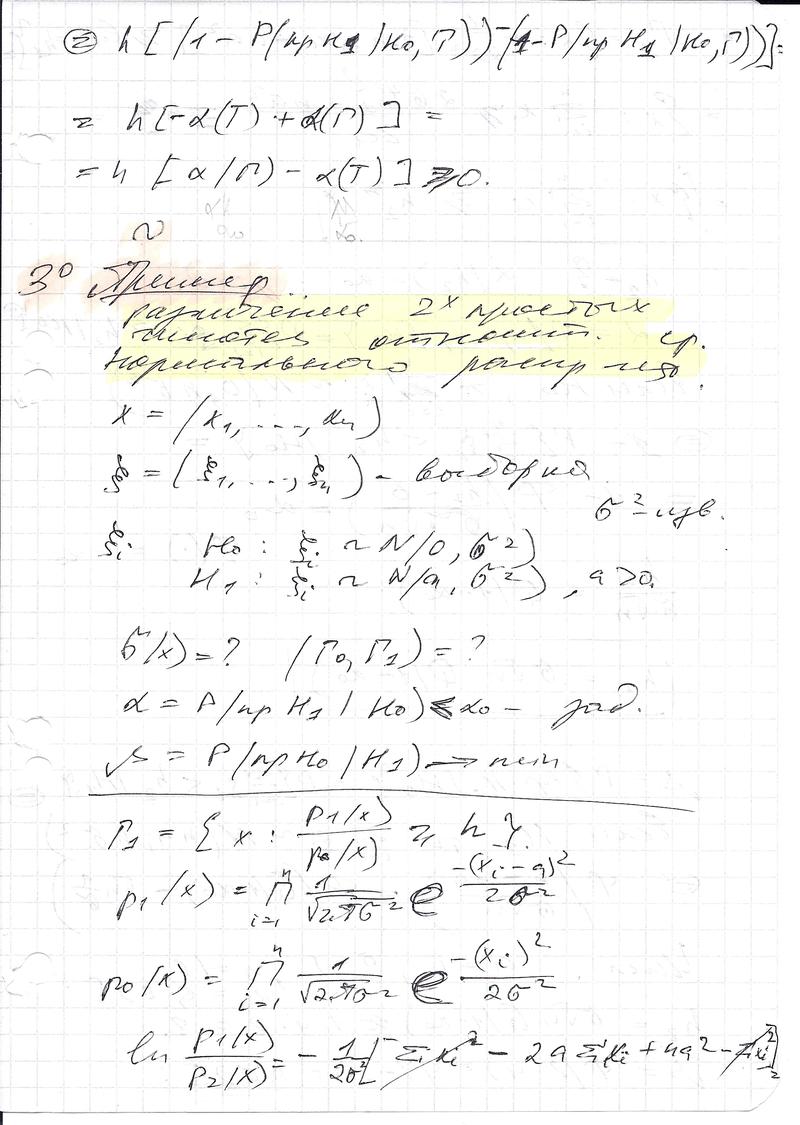 ② h [ (1 - P(пр H₁ | H₀, T)) - (1 - P(пр H₁ | H₀, Г)) ] =
= h [ -α(T) + α(Г) ] =
= h [ α(Г) - α(T) ] ≥ 0.
3⁰ Пример
различение 2ˣ простых
гипотез относит. ср.
нормального распр-я
x = (x₁, ..., xₙ)
ξ = (ξ₁, ..., ξₙ) - выборка
σ² - изв.
ξᵢ H₀ : ξᵢ ~ N(0, σ²)
H₁ : ξᵢ ~ N(a, σ²), a > 0.
δ(x) = ? (Г₀, Г₁) = ?
α = P(пр H₁ | H₀) ≤ α₀ - зад.
β = P(пр H₀ | H₁) → min
Г₁ = { x : p₁(x) / p₀(x) ≥ h }.
p₁(x) = ∏ᵢ₌₁ⁿ 1/√(2πσ²) e^(-(xᵢ - a)² / 2σ²)
p₀(x) = ∏ᵢ₌₁ⁿ 1/√(2πσ²) e^(-(xᵢ)² / 2σ²)
ln p₁(x) / p₂(x) = - 1/2σ² [ Σxᵢ² - 2a Σxᵢ + na² - Σxᵢ² ] =